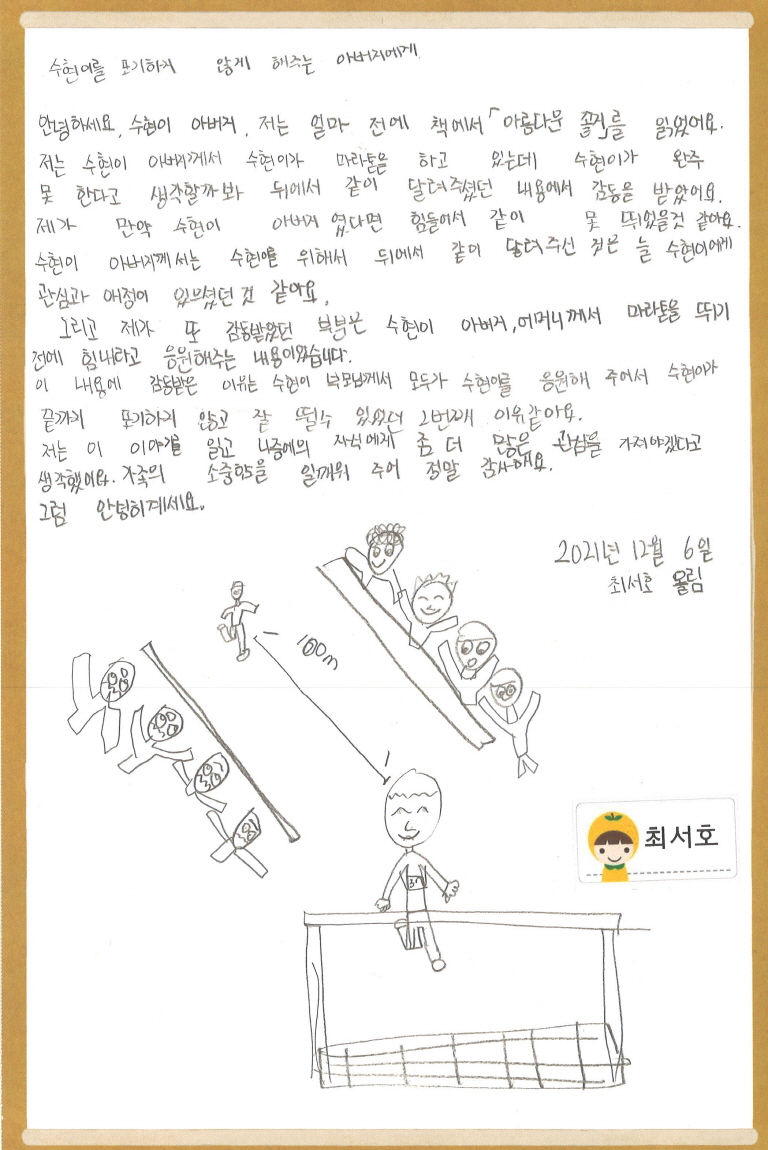 수현이를 포기하지 않게 해주는 아버지에게
안녕하세요, 수현이 아버지, 저는 얼마 전에 책에서「아름다운 꼴찌」를 읽었어요.
저는 수현이 아버지께서 수현이가 마라톤을 하고 있는데 수현이가 완주
못 한다고 생각할까봐 뒤에서 같이 달려주셨던 내용에서 감동을 받았어요.
제가 만약 수현이 아버지였다면 힘들어서 같이 못 뛰었을것 같아요.
수현이 아버지께서는 수현이를 위해서 뒤에서 같이 달려주신 것은 늘 수현이에게
관심과 애정이 있으셨던 것 같아요.
그리고 제가 또 감동받았던 부분은 수현이 아버지, 어머니께서 마라톤을 뛰기
전에 힘내라고 응원해주는 내용이였습니다.
이 내용에 감동받은 이유는 수현이 부모님께서 모두가 수현이를 응원해 주어서 수현이가
끝까지 포기하지 않고 잘 뛸수 있었던 2번째 이유같아요.
저는 이 이야기를 읽고 나중에의 자식에게 좀 더 많은 관심을 가져야겠다고
생각했어요. 가족의 소중함을 일깨워 주어 정말 감사해요.
그럼 안녕히계세요.
2021년 12월 6일
최서호 올림
100m
최서호